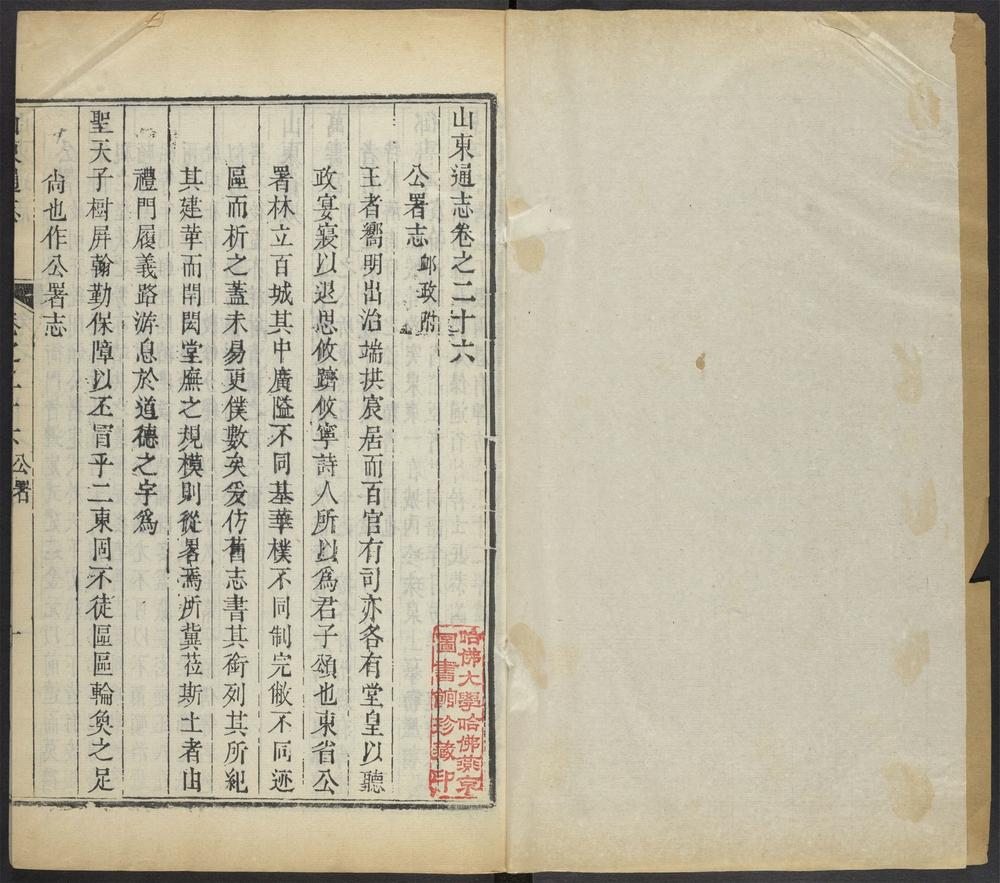 山東通志卷之二十六
公署志 郵政附
王者嚮明出治端拱宸居而百官有司亦各有堂皇以聽
政宴寢以退思攸躋攸寧詩人所以爲君子頌也東省公
署林立百城其中廣隘不同基華樸不同制完敝不同迹
區而析之蓋未易更僕數矣爰仿舊志書其銜列其所紀
其建革而閈閎堂廡之規模則從畧焉所冀莅斯土者由
禮門履義路游息於道德之宇爲
聖天子樹屏翰勤保障以丕冒乎二東固不徒區區輪奐之足
尚也作公署志
山東通志
卷之二十六 公署
一
哈佛大學哈佛燕京
圖書館珍藏印